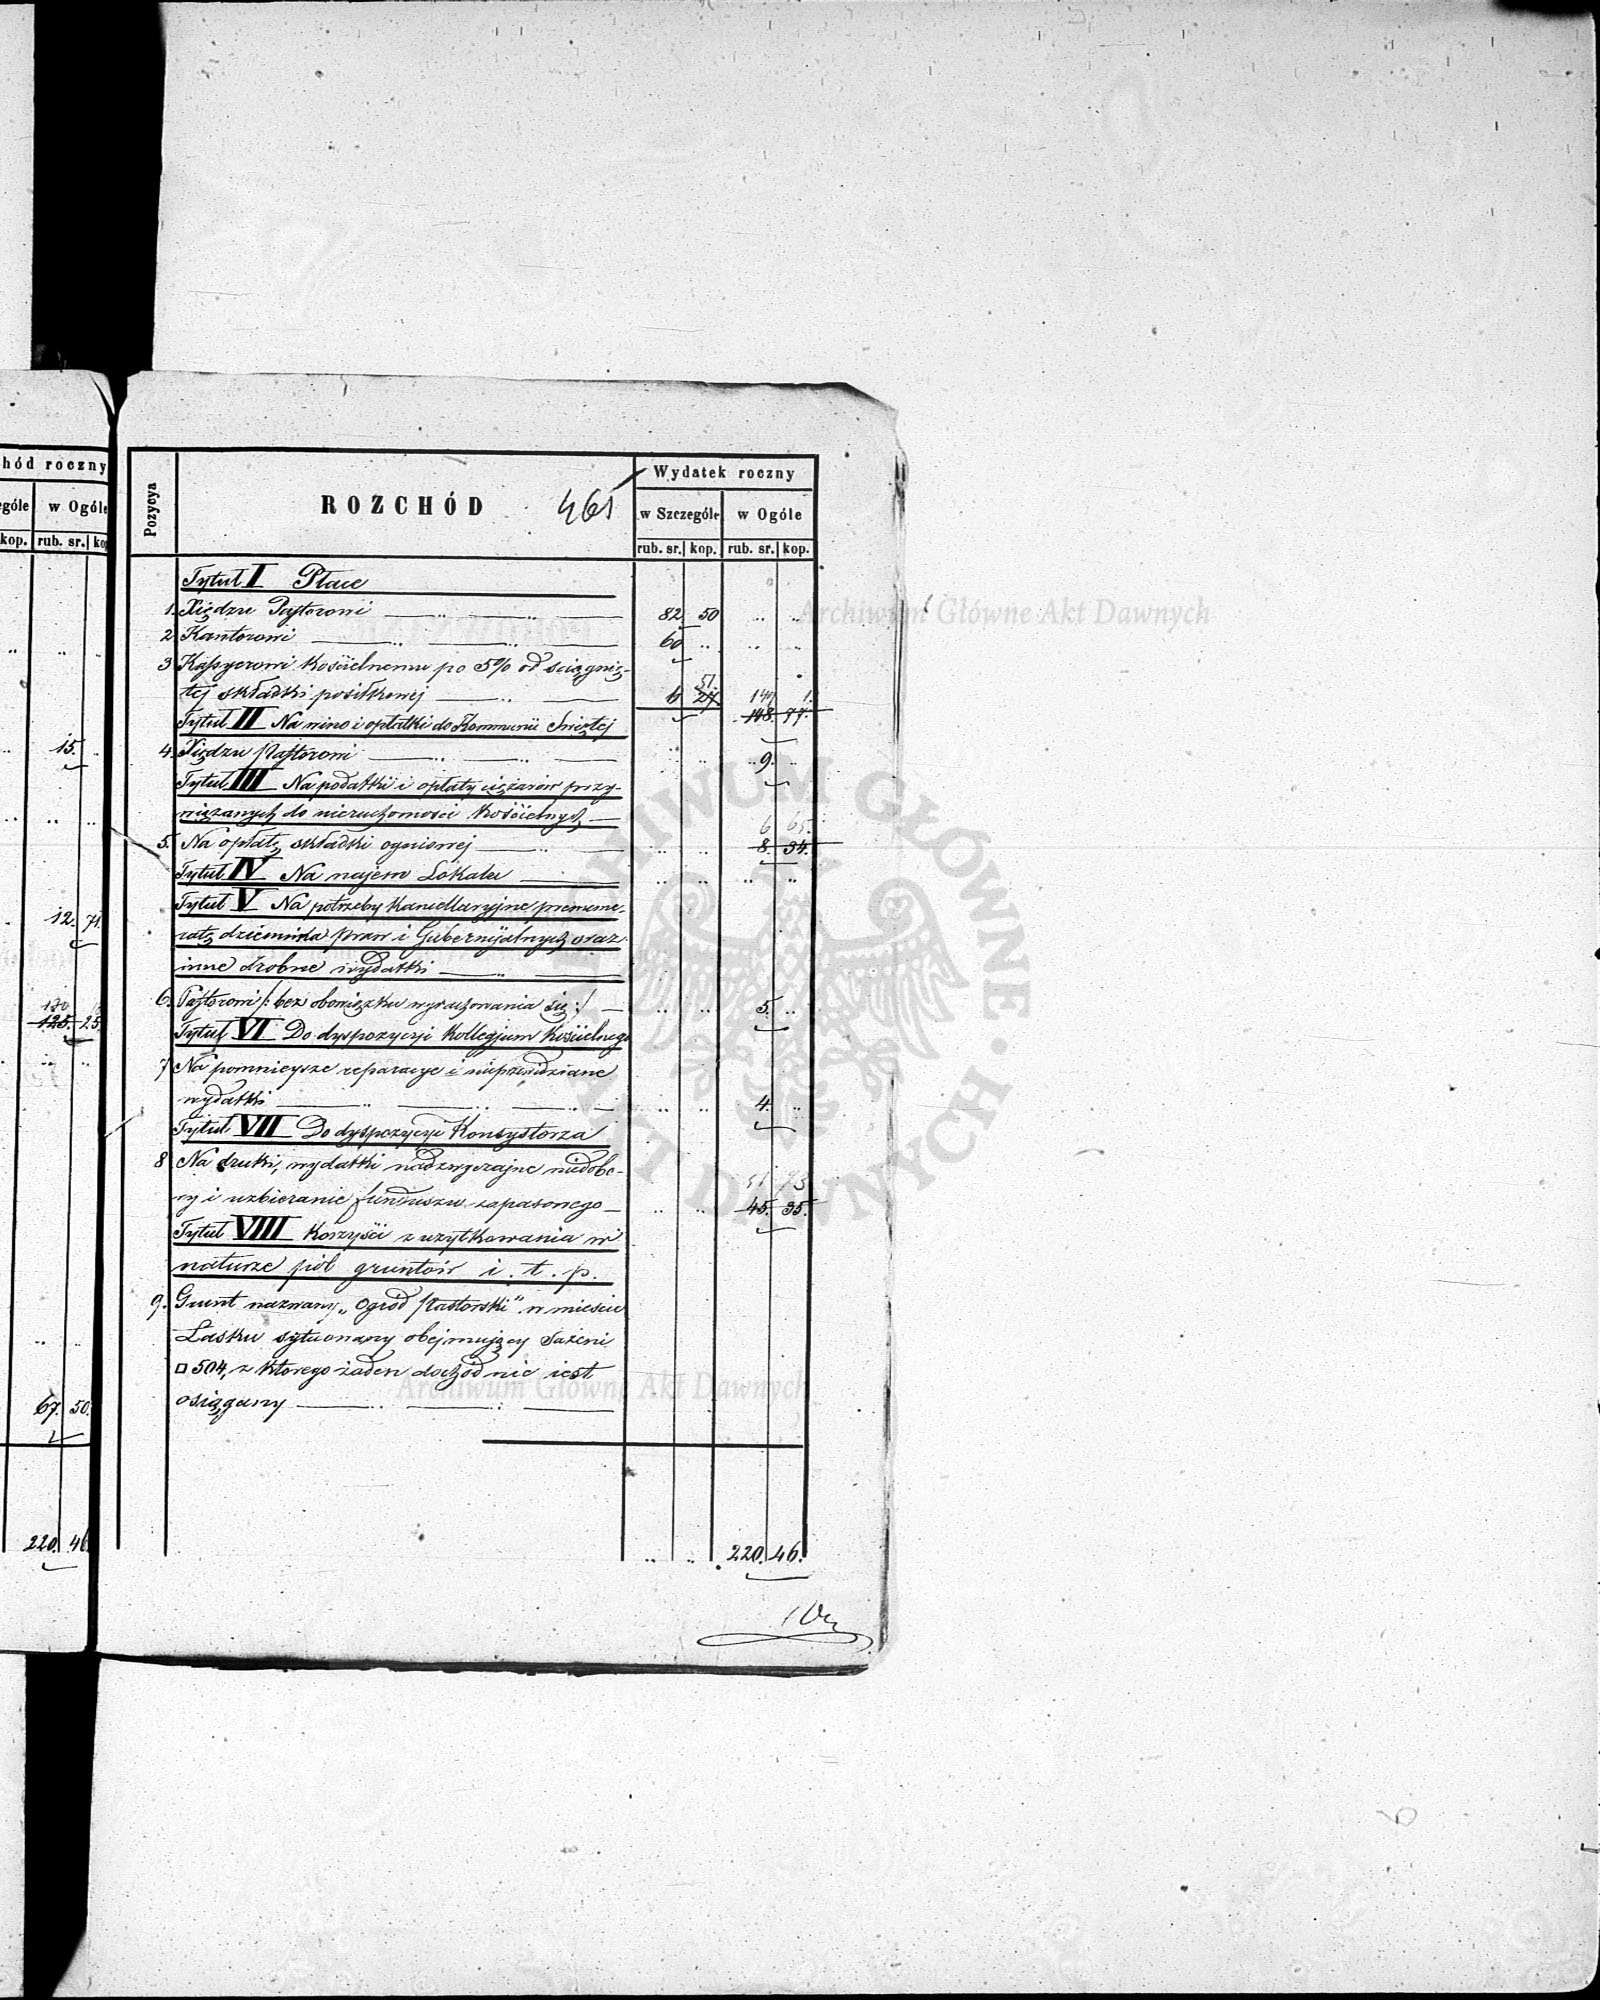 hód roczny
ególe w Ogóle
kop. rub. sr. ko
15.
12. 71.
130
125. 25.
67. 50.
220. 46.
Pozycya
ROZCHÓD
465
Wydatek roczny
w Szczególe w Ogóle
rub. sr. kop. rub. sr. kop.
Tytuł I Płace
1. Xiędzu Pastorowi 82 50
2 Kantorowi 60
3 Kassyerowi Kościelnemu po 5% od ściągnię-
51.
tej składki posiłkowej 6 27 149 1.
Tytuł II Na wino i opłatki do Kommunii Swiętej 148. 77.
4. Xiędzu Pastorowi 9.
Tytuł III Na podatki i opłaty ciężarów przy-
wiązanych do nieruchomości Kościelnych
6 65.
5. Na opłatę składki ogniowej 8. 34.
Tytuł IV Na najem Lokalu
Tytuł V Na potrzeby Kancellaryjne prenume-
ratę dziennika praw i Gubernijalnych oraz
inne drobne wydatki
6. Pastorowi /: bez obowiązku wyrachowania się :/ 5.
Tytuł VI Do dyspozycyi Kollegjum Kościelnego
7 Na pomniejsze reparacye i nieprzewidziane
wydatki 4.
Tytuł VII Do dyspozycyi Konsystorza
8 Na druki, wydatki nadzwyczajne niedobo-
51 73
ry i uzbieranie funduszu zapasowego 45. 35.
Tytuł VIII Korzyści z użytkowania w
naturze pól gruntów i. t. p.
9. Grunt nazwany „Ogród Pastorski" w mieście
Lasku sytuowany obejmujący Sażeni
□ 504, z którego żaden dochód nie jest
osiągany
220. 46.
Archiwum Główne Akt Dawnych
ARCHIWUM GŁÓWNE AKT DAWNYCH
Archiwum Główne Akt Dawnych